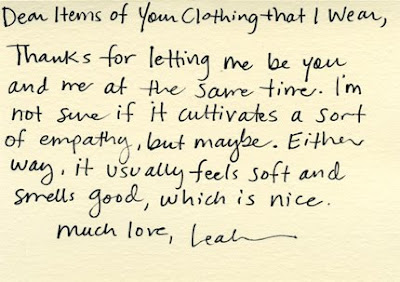 Dear Items of Your Clothing that I Wear,
Thanks for letting me be you
and me at the same time. I'm
not sure if it cultivates a sort
of empathy, but maybe. Either
way, it usually feels soft and
smells good, which is nice.
much love, Leah